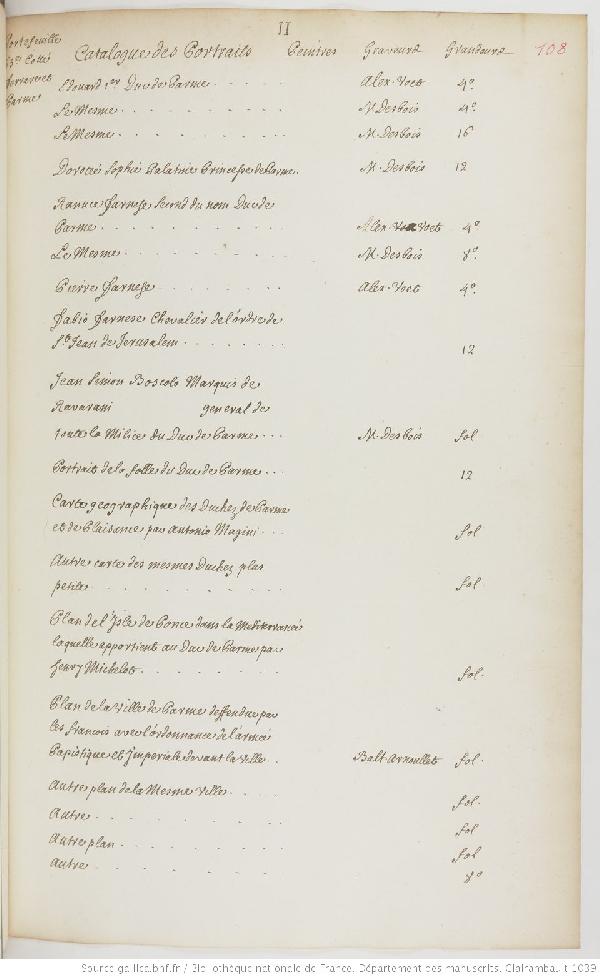 II
Portefeuille
13e Cotté
ferrare et
Parme
Catalogue des Portraits Peintres Graveurs Grandeurs 108
Edouard 1er Duc de Parme . . . . . Alex. Voet 4o
Le Mesme . . . . . . . . . N. Desbois 4o.
Le Mesme . . . . . . . . . N. Desbois 16
Dorotée Sophie Palatine Princesse de Parme. N. Desbois 12
Ranuce farnese second du nom Duc de
Parme . . . . . . . . . Alex. Voet 4o
Le Mesme . . . . . . . . . N. Desbois 8o.
Pierre farnese . . . . . . . Alex. Voet 4o.
Fabio farnese Chevalier de l'ordre de
St Jean de Jerusalem . . . . . . . 12
Jean Simon Boscolo Marquis de
Ravarani general de
toute la Milice du Duc de Parme . . . N. Desbois fol
Portrait de la folle du Duc de Parme . . . 12
Carte geographique des Duchez de Parme
et de Plaisance par Antonio Magini . . . fol.
Autre carte des mesmes Duchez plus
petite . . . . . . . . . . fol.
Plan de l'Isle de Ponce dans la Mediterranée
laquelle appartient au Duc de Parme par
henry Michelot . . . . . . . . fol.
Plan de la Ville de Parme deffendue par
les francois avec l'ordonnance de l'armée
Papistique et Imperiale devant la ville . Balt. Arnoullet fol.
Autre plan de la Mesme Ville . . . . fol.
Autre . . . . . . . . . . fol
Autre plan . . . . . . . . . fol
Autre . . . . . . . . . . 8o
Source gallica.bnf.fr / Bibliothèque nationale de France. Département des manuscrits. Clairambault 1039